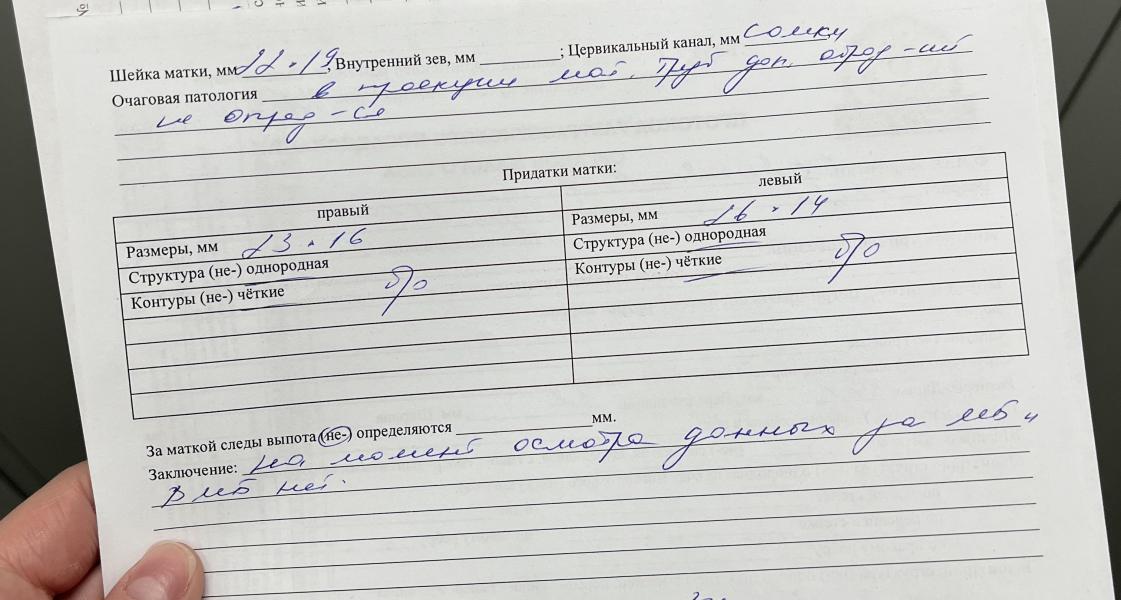 Шейка матки, мм 22 * 19, Внутренний зев, мм ________; Цервикальный канал, мм сомкн
Очаговая патология в проекции мат. труб доп. образ-ий
не опред-ся
Придатки матки:
правый левый
Размеры, мм 23 * 16 Размеры, мм 26 * 14
Структура (не-) однородная Структура (не-) однородная
Контуры (не-) чёткие б/о Контуры (не-) чёткие б/о
За маткой следы выпота (не-) определяются ________ мм.
Заключение: На момент осмотра данных за МБ и
ВМБ нет.